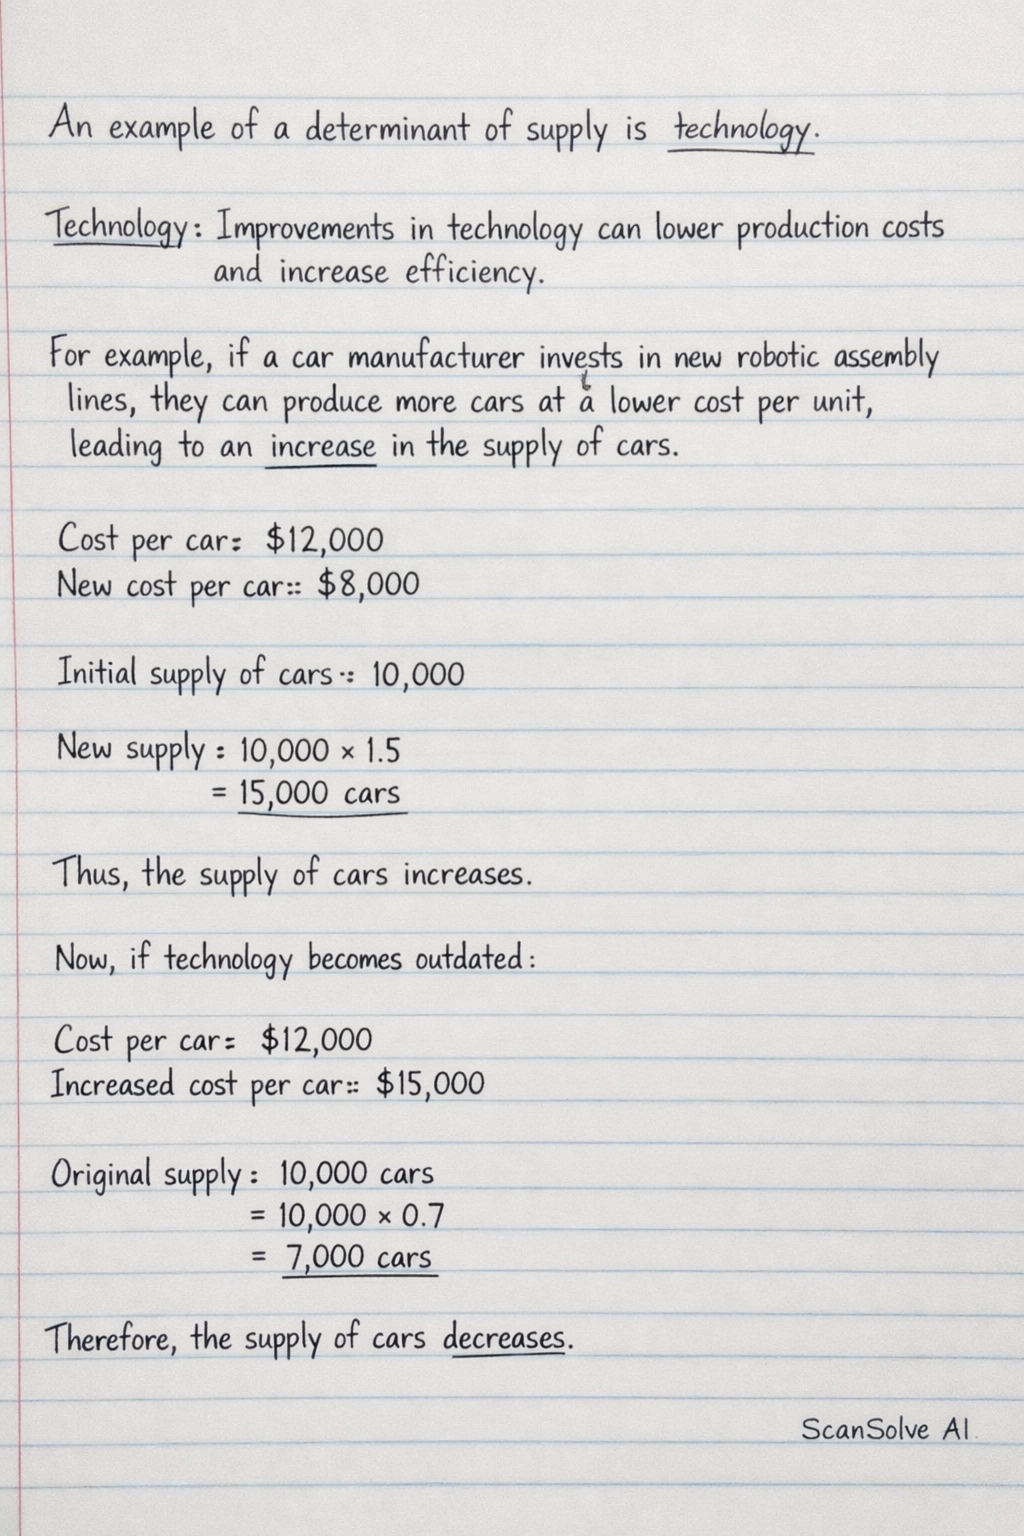 An example of a determinant of supply is technology.
Technology: Improvements in technology can lower production costs
and increase efficiency.
For example, if a car manufacturer invests in new robotic assembly
lines, they can produce more cars at a lower cost per unit,
leading to an increase in the supply of cars.
Cost per car: $12,000
New cost per car:: $8,000
Initial supply of cars·: 10,000
New supply : 10,000 × 1.5
= 15,000 cars
Thus, the supply of cars increases.
Now, if technology becomes outdated:
Cost per car: $12,000
Increased cost per car:: $15,000
Original supply: 10,000 cars
= 10,000 × 0.7
= 7,000 cars
Therefore, the supply of cars decreases.
ScanSolve AI